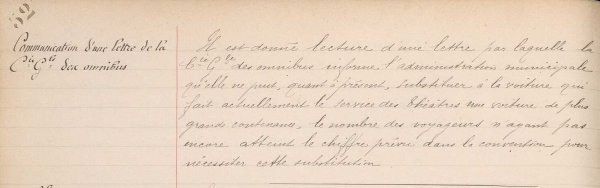 52
Communication d'une lettre de la
Cie Gle des omnibus
Il est donné lecture d'une lettre par laquelle la
Cie Gle des omnibus informe l'administration municipale
qu'elle ne peut, quant à présent, substituer à la voiture qui
fait actuellement le service des théâtres une voiture de plus
grande contenance, le nombre des voyageurs n'ayant pas
encore atteint le chiffre prévu dans la convention pour
nécessiter cette substitution.